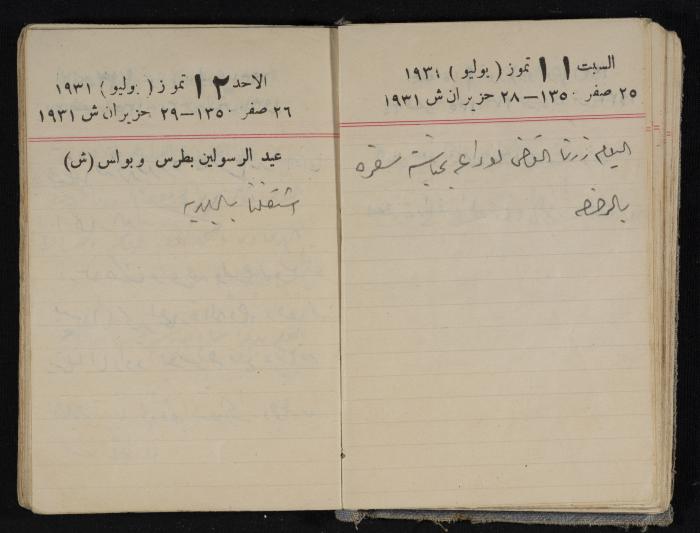 السبت ١١ تموز ( يوليو ) ١٩٣١
٢٥ صفر ١٣٥٠ — ٢٨ حزيران ش ١٩٣١
اليوم زرنا القوتلي لوداعه بمناسبة سفره
بالرخصه
الاحد ١٢ تموز ( يوليو ) ١٩٣١
٢٦ صفر ١٣٥٠ — ٢٩ حزيران ش ١٩٣١
عيد الرسولين بطرس وبولس (ش)
اشتغلنا بالبلديه